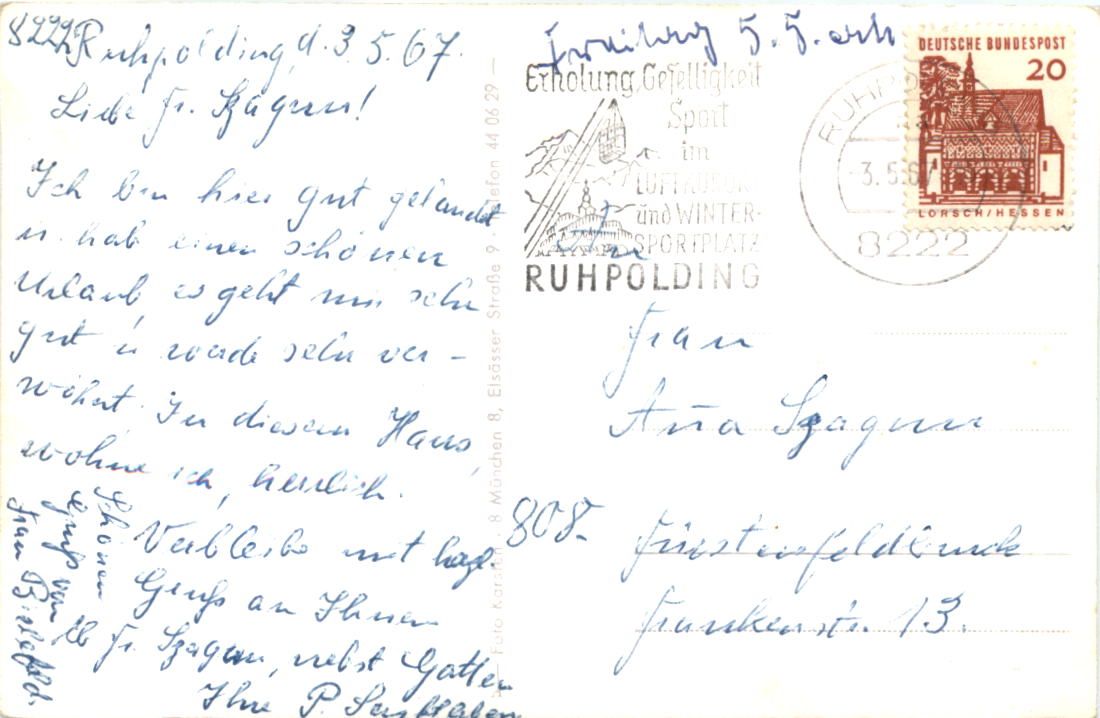 8222 Ruhpolding, d. 3.5.67.
Liebe Fr. Szagun!
Ich bin hier gut gelandet
u. hab einen schönen
Urlaub, es geht mir sehr
gut u. werde sehr ver-
wöhnt. In diesem Haus,
wohne ich, herrlich.
Verbleibe mit herzl.
Gruß an Ihnen
lb Fr. Szagun, nebst Gatten
Ihre P.
Schönen
Gruß von
Frau Bielefeld.
Foto Karsten, 8 München 8, Elsässer Straße 9 · Telefon 44 06 29
Freitag 5.5. erh
Erholung, Geselligkeit
Sport
im
LUFTKURORT
und WINTER-
SPORTPLATZ
RUHPOLDING
RUHPOLDING
-3.5.67
8222
DEUTSCHE BUNDESPOST
20
LORSCH/HESSEN
An
Frau
Anna Szagun
808- Fürstenfeldbruck
Frankenstr. 13.